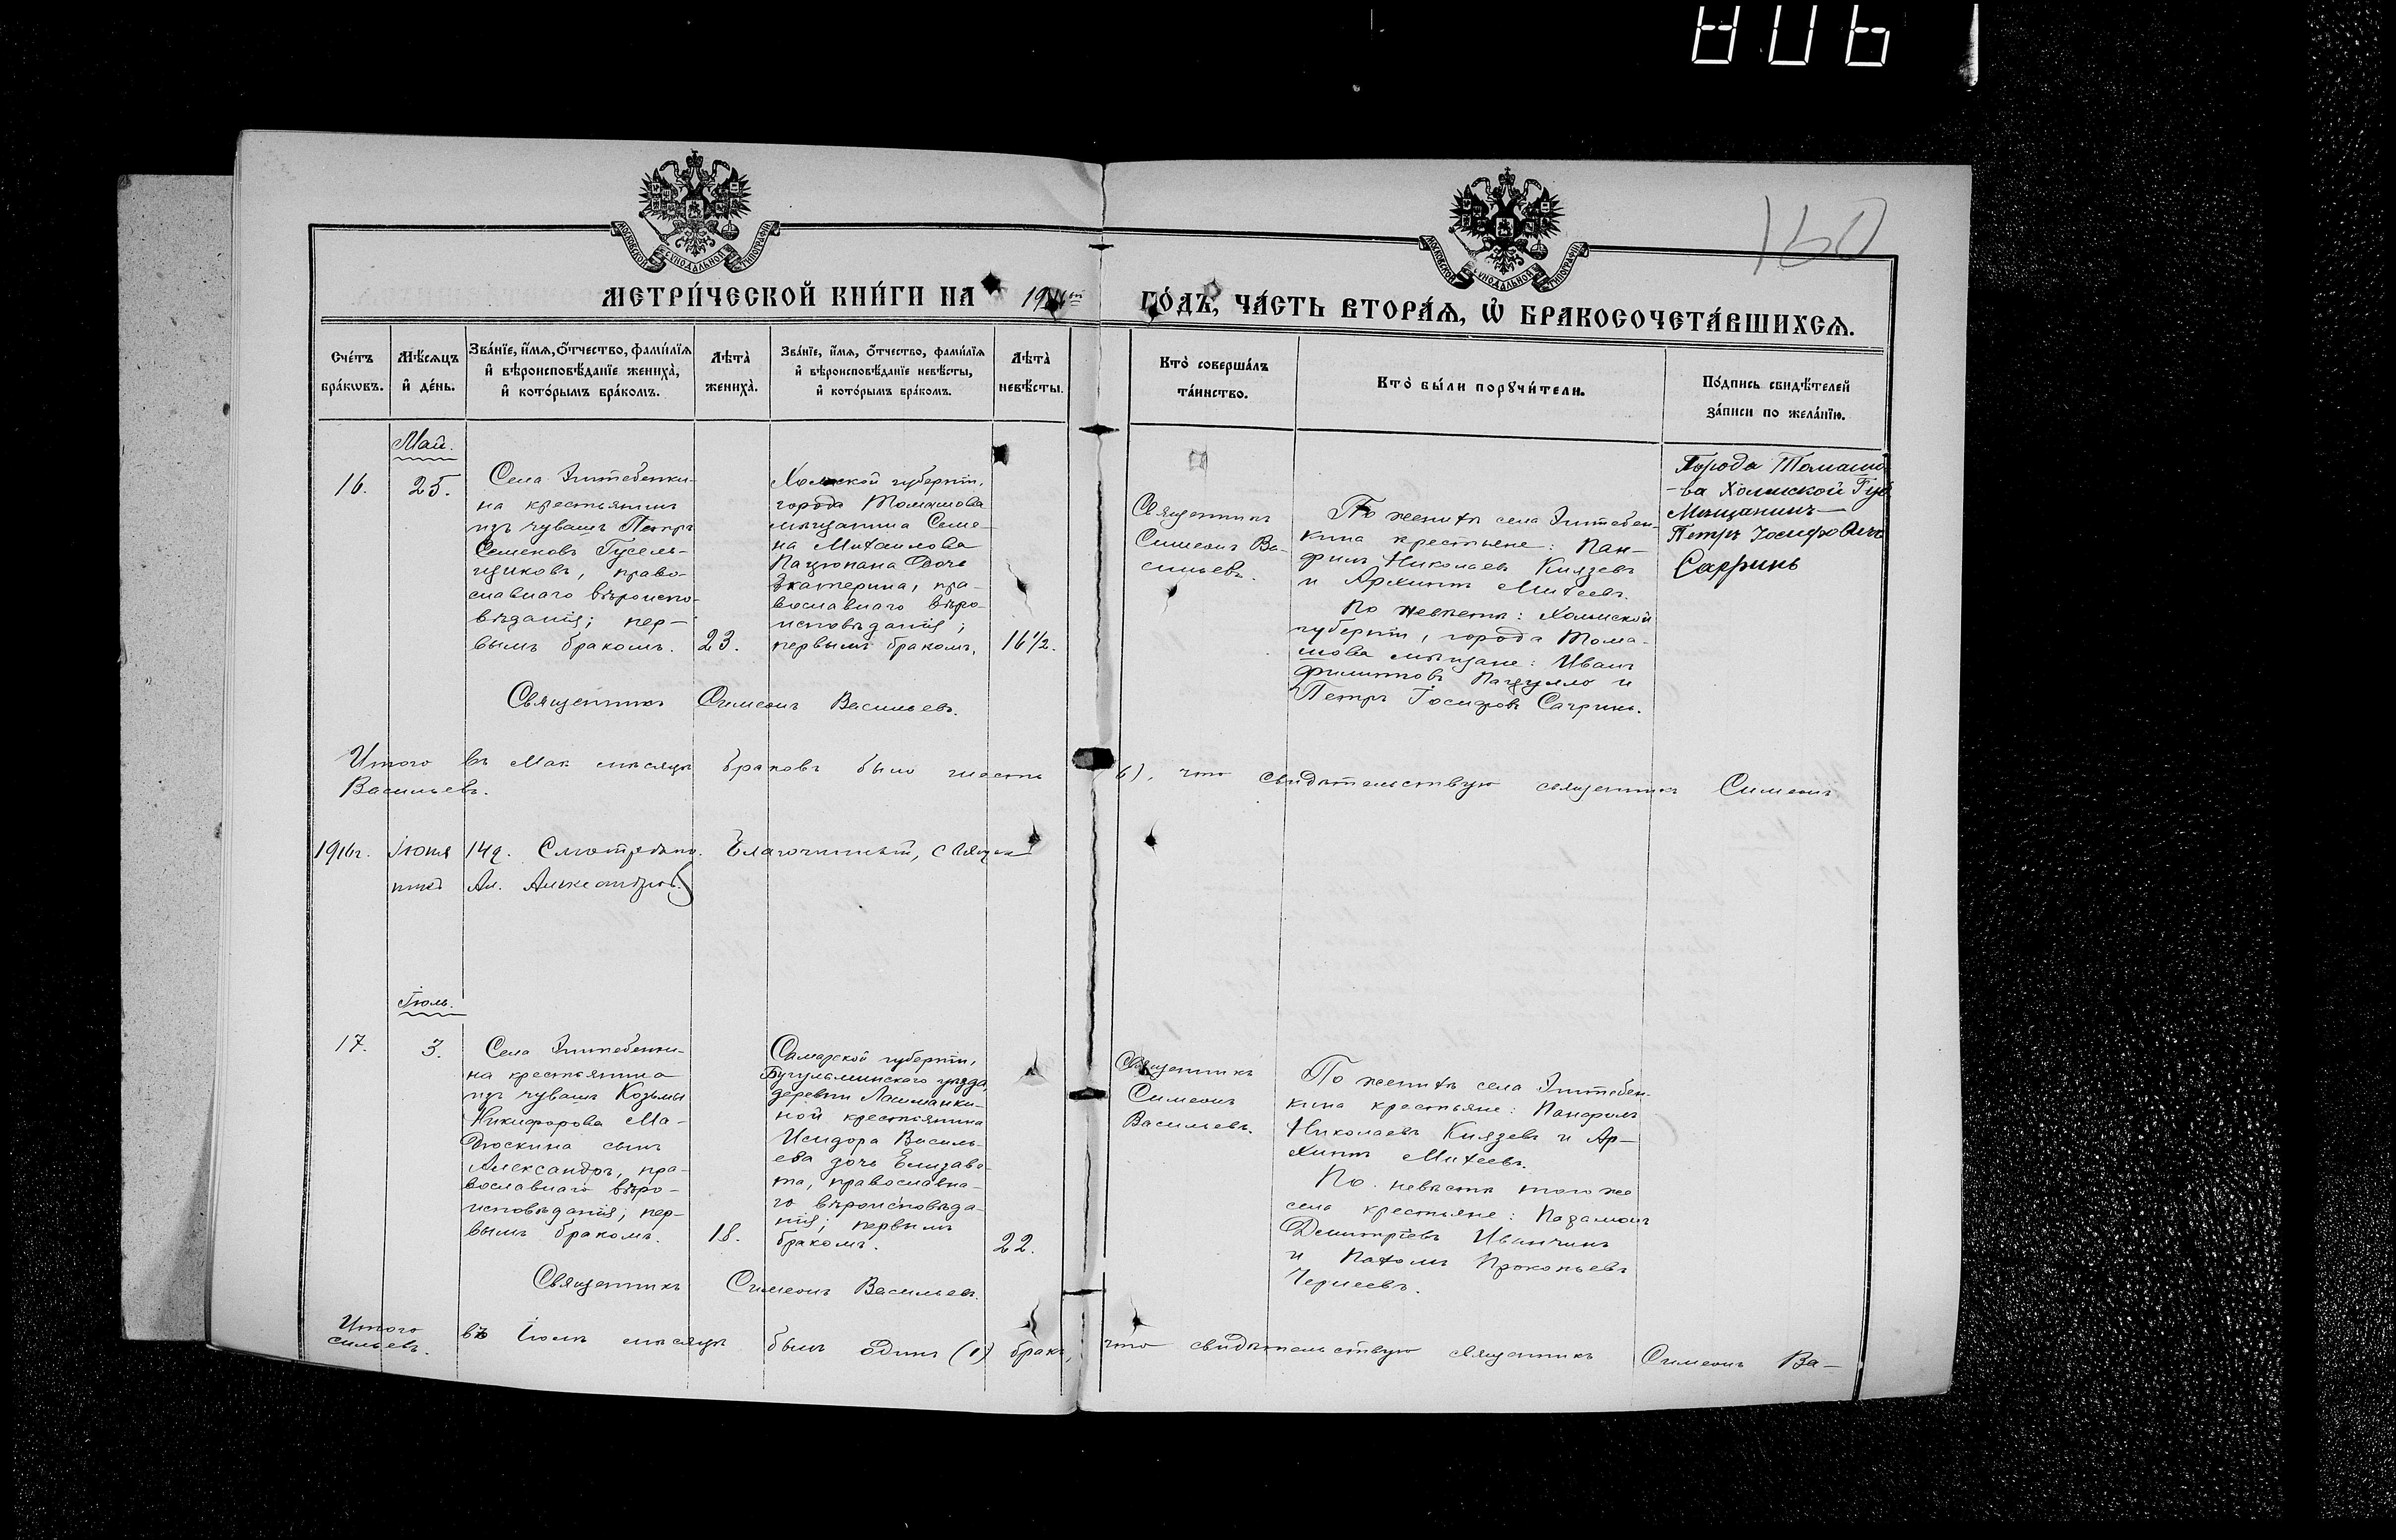 160
МОСКОВСКОЙ СѴНОДАЛЬНОЙ ТИПОГРАФІИ
МОСКОВСКОЙ СѴНОДАЛЬНОЙ ТИПОГРАФІИ
МЕТРИ́ЧЕСКОЙ КНИ́ГИ НА 1916й ГО́ДЪ, ЧА́СТЬ ВТОРА́Ѧ, Ѡ҆ БРАКОСОЧЕТА́ВШИХСѦ.
Сче́тъ
бра́кѡвъ.
Мѣ́сѧцъ
и҆ де́нь.
Зва́нїе, и҆́мѧ, ѻ҆́тчество, фами́лїѧ
и҆ вѣроисповѣ́данїе жениха̀,
и҆ кото́рымъ бра́комъ.
Лѣта̀
жениха̀.
Зва́нїе, и҆́мѧ, ѻ҆́тчество, фами́лїѧ
и҆ вѣроисповѣ́данїе невѣ́сты,
и҆ кото́рымъ бра́комъ.
Лѣта̀
невѣ́сты.
Кто̀ соверша́лъ
та́инство.
Кто̀ бы́ли порꙋчи́тели.
По́дпись свидѣ́телей
за́писи по жела́нїю.
Май.
16.
25.
Села Эштебенки-
на крестьянинъ
изъ чувашъ Петръ
Семеновъ Гусель-
щиковъ, право-
славнаго вѣроиспо-
вѣданія; пер-
вымъ бракомъ.
23.
Холмской губерніи,
города Томашова
мѣщанина Семе-
на Михаилова
Пацюпана дочь
Екатерина, пра-
вославнаго вѣро-
исповѣданія;
первымъ бракомъ.
16½.
Священникъ
Симеонъ Ва-
сильевъ.
По женихѣ села Эштебен-
кина крестьяне: Пан-
филъ Николаевъ Князевъ
и Архипъ Михеевъ.
По невѣстѣ: Холмской
губерніи, города Тома-
шова мѣщане: Иванъ
Филипповъ Пацуло и
Петръ Іосифовъ Сагринь.
Города Томашо
-ва Холмской Губ
Мѣщанинъ
Петръ Іосифовичъ
Сагринь
Священникъ Симеонъ Васильевъ.
Итого въ Маѣ мѣсяцѣ браковъ было шесть 6), что свидѣтельствую священникъ Симеонъ
Васильевъ.
1916г. Іюня 14д. Смотрѣно. Благочинный, священ
никъ Ал. Александровъ
Іюль.
17.
3.
Села Эштебенки-
на крестьянина
изъ чувашъ Козьмы
Никифорова Ма-
дюскина сынъ
Александръ, пра-
вославнаго вѣро-
исповѣданія; пер-
вымъ бракомъ.
18.
Самарской губерніи,
Бугульминскаго уѣзда,
деревни Лашманки-
ной крестьянина
Исидора Василь-
ева дочь Елизаве-
та, православна-
го вѣроисповѣда-
нія; первымъ
бракомъ.
22.
Священникъ
Симеонъ
Васильевъ.
По женихѣ села Эштебен-
кина крестьяне: Панфилъ
Николаевъ Князевъ и Ар-
хипъ Михеевъ.
По невѣстѣ того же
села крестьяне:
Димитріевъ Иванчинъ
и Пахомъ Прокопьевъ
Священникъ Симеонъ Васильевъ.
Итого въ Іюлѣ мѣсяцѣ былъ одинъ (1) бракъ, что свидѣтельствую священникъ Симеонъ Ва-
сильевъ.